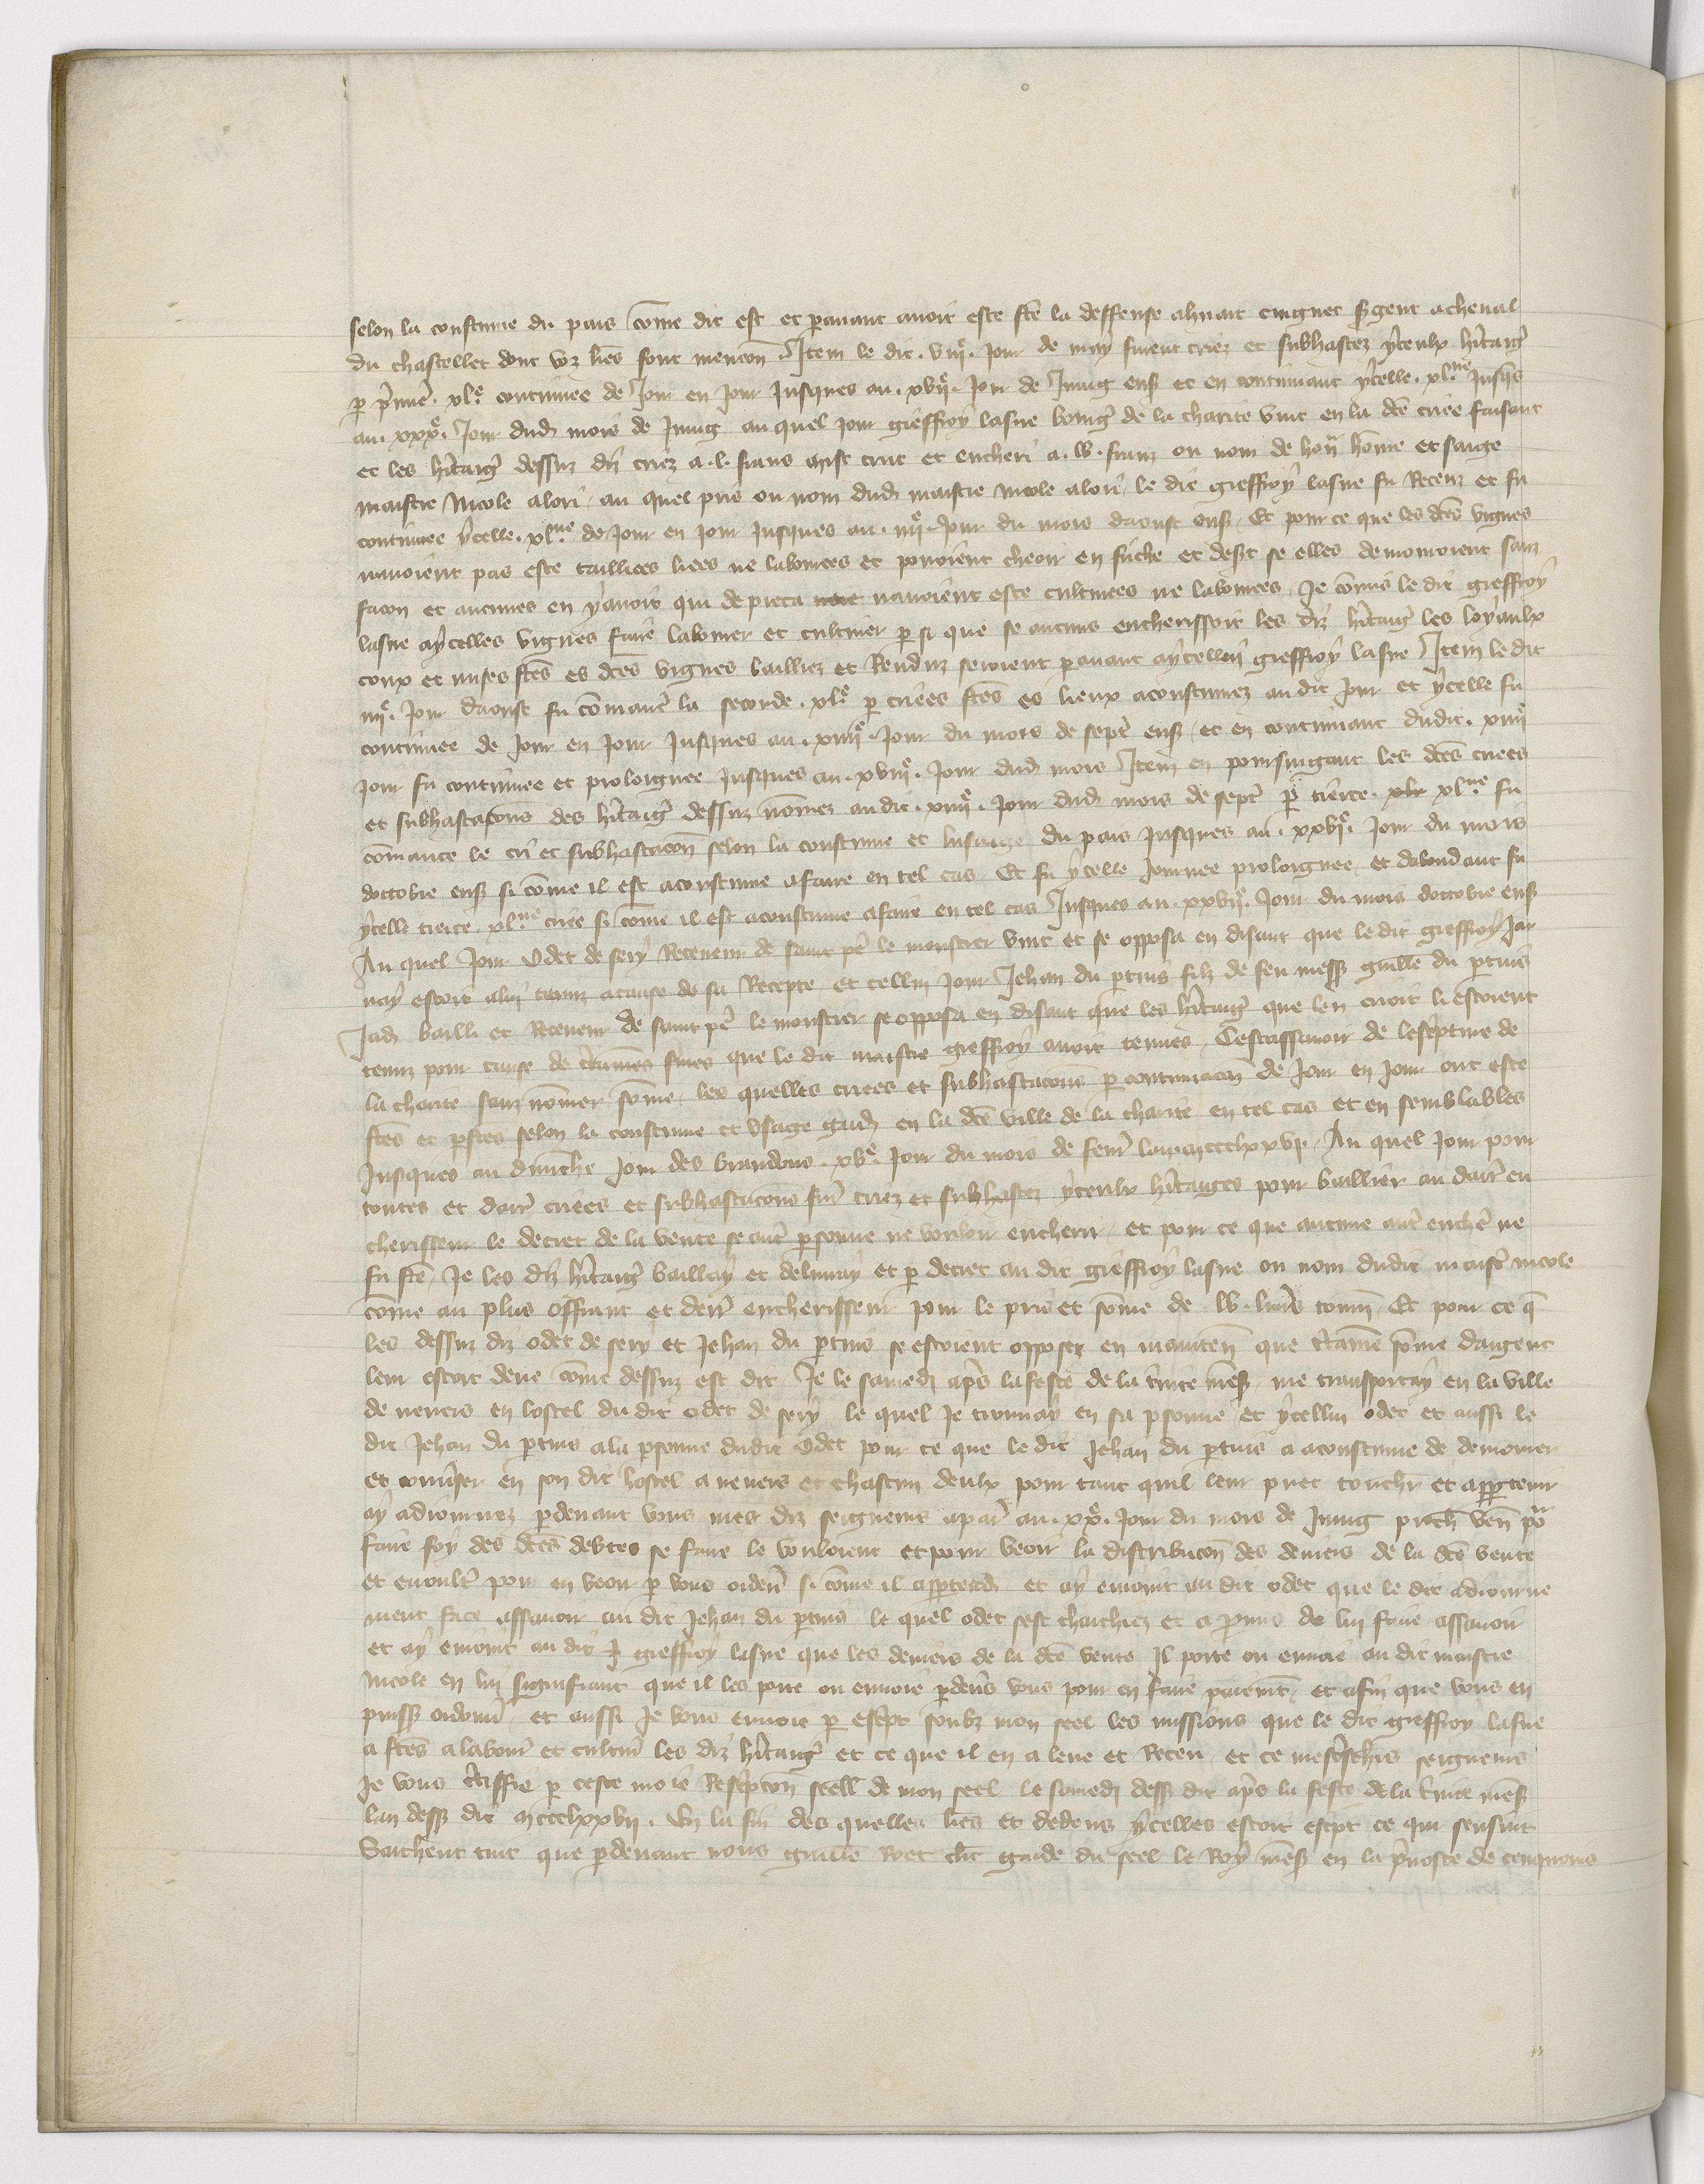 selon la coustume du pais come dit est et pavant avoit este fte la deffense a huait cuignet sgent acheval
du chastellet dont voz lres font mencon. Item le dit. viiie. jour de may furent criez et subhastez yceulx hitaigz
p pmiere. xle. continuee de Jour en jour jusques au. xvie. jor de Juing ens et en continuant ycelle. xlne jusqs
au. xxxe. Jour dud mois de Juing au quel jour gieffroy lasne bourgs de la charite vint en la dce criee faisant
et les hitaigz dessuz diz criez a .l. frans mist crut et encheri a. lv. franz ou nom de hon home et saige
maistre Nicole alori, au quel pris ou nom dud maistre nicole alori, le dit gieffroy lasne fu Receuz et fu
continuee ycelle. xlne de jour en jour jusques au. iiiie. jour du mois daoust ens, Et pour ce que les dces vignes
navoient pas este taillees liees ne labourees et povoient cheoir en friche et desert se elles demouroient sanz
facon et aucunes en yavoit qui de pieca navoient este cultivees ne labourees, Je commis le dit gieffroy
lasne aycelles vignes faire labourer et cultiver p si que se aucuns encherissoit les diz hitaigz les loyaulx
coux et mises ftes es dces vignes bailliez et Renduz seroient pavant aycellui gieffroy lasne Item le dit
iiiie. jour daoust fu comancie la seconde. xle p criees ftes es lieux acoustumez au dit jour et ycelle fu
continuee de jour en jour jusques au. xiiiie. jour du mois de septe ens, et en continuant dudit. xiiiie
jour fu continuee et prolongnee jusques au. xviiie. jour dud mois Item en poursuigant les dces criees
et subhastacons des hitaigz dessuz nomez au dit. xiiiie. jour dud mois de septe p tierce. xlne fu
comance le cri et subhastacon selon la coustume et lusaige du pais jusques au. xxvie. jour du mois
doctobre ens si come il est acoustume afaire en tel cas. Et fu ycelle journee prolongnee, et dabondant fu
ycelle tierce. xlne criee si come il est acoustume afaire en tel cas Jusques au. xxviie. jour du mois doctobre ens
Au quel jour Odet de sery Receveur de saint pe le moustier vint et se opposa en disant que le dit gieffroy Jar
nay estoit alui tenuz acause de sa Recepte, et cellui jour Jehan du ptuis filz de feu mess guille du ptuis
Jad bailli et Receveur de saint pe le moustier se opposa en disant que les hitaigz que len crioit li estoient
tenuz pour cause de ctaines fmes que le dit maistre gieffroy avoit tenues, Cestassavoir de lescpture de
la charite sanz nomer some, les quelles criees et subhastacons p continuacon de jour en jour ont este
ftes et pftes selon la coustume et Usage gard en la dce ville de la charite en tel cas et en semblables
jusques au dimche jour des brandons. xve. jour du mois de fevr lan mccclxxvi, Au quel jour pour
toutes et dairr criees et subhastacons furt criez et subhastez yceulx hitaiges pour baillier au dair en
cherisseur le decret de la vente se aut psonne ne vouloit encherir, et pour ce que aucune aut enche ne
fu fte, Je les diz hitaigz baillay et delivray et p decret au dit gieffroy lasne ou nom dudit maist nicole
come au plus offrant et derr encherisseur pour le pris et some de. lv. livrs tourn, Et pour ce q
les dessuz diz odet de sery et Jehan du ptuis se estoient opposez en mainten que ctaine some dargent
leur estoit deue come dessuz est dit Je le samed aps lafeste de la trinite mes me transportay en la ville
de nevers en lostel du dit odet de sery le quel Je trouvay en sa psonne, et ycellui odet et aussi le
dit Jehan du ptuis ala psonne dudit Odet pour ce que le dit Jehan du ptuis a acoustume de demourer
et converser en son dit hostel a nevers et chascun deulx pour tant quil leur puet touchr et apptenir
ay adiournez pdevant vous mes diz seigneurs apair au. xxe. jour du mois de Juing proch ven por
faire foy des dces debtes se faire le vouloient et pour veoir la distribucon des deniers de la dce vente
et en oultr pour en veoir p vous ordenr si come il apptend et ay enioint au dit odet que le dit adiourne
ment face assavoir au dit Jehan du ptuis le quel odet sest chaichiez et a pmis de lui faire assavoir
et ay enioint au dit gieffroy lasne que les deniers de la dce vente Il porte ou envoie au dit maistre
Nicole en lui signifiant que il les porte ou envoie pdevs vous pour en faire paiemt, et afin que vous en
puiss ordonr, et aussi Je vous envoie p escpt soubz mon seel les missions que le dit gieffroy lasne
a ftes alabour et cultivr les diz hitaigz et ce que il en a leve et Receu, et ce mes tschrs seigneurs
Je vous ctiffie p ceste moie Rescpcon seell de mon seel le samed dess dit aps la feste de la trinite mes
lan dess dit mccclxxvii. En la fin des quelles lres et dedens ycelles estoit escpt ce qui sensuit
Saichent tuit que pdevant nous guille Roet clrc garde du seel le Roy mess en la pvoste de cenquoins